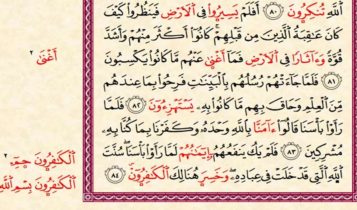 ٱللَّهِ تُنكِرُونَ ٨٠ أَفَلَمْ يَسِيرُوا۟ فِى ٱلْأَرْضِ فَيَنظُرُوا۟ كَيْفَ
كَانَ عَٰقِبَةُ ٱلَّذِينَ مِن قَبْلِهِمْ كَانُوٓا۟ أَكْثَرَ مِنْهُمْ وَأَشَدَّ
قُوَّةً وَءَاثَارًا فِى ٱلْأَرْضِ فَمَآ أَغْنَىٰ عَنْهُم مَّا كَانُوا۟ يَكْسِبُونَ
٨١ فَلَمَّا جَآءَتْهُمْ رُسُلُهُم بِٱلْبَيِّنَٰتِ فَرِحُوا۟ بِمَا عِندَهُم
مِّنَ ٱلْعِلْمِ وَحَاقَ بِهِم مَّا كَانُوا۟ بِهِۦ يَسْتَهْزِءُونَ ٨٢ فَلَمَّا
رَأَوْا۟ بَأْسَنَا قَالُوٓا۟ ءَامَنَّا بِٱللَّهِ وَحْدَهُۥ وَكَفَرْنَا بِمَا كُنَّا بِهِۦ
مُشْرِكِينَ ٨٣ فَلَمْ يَكُ يَنفَعُهُمْ إِيمَٰنُهُمْ لَمَّا رَأَوْا۟ بَأْسَنَا سُنَّتَ
ٱللَّهِ ٱلَّتِى قَدْ خَلَتْ فِى عِبَادِهِۦ وَخَسِرَ هُنَالِكَ ٱلْكَٰفِرُونَ ٨٤
أَغْنَىٰ ٢
ٱلْكَٰفِرُونَ حمٓ ٢
ٱلْكَٰفِرُونَ بِسْمِ ٱللَّهِ